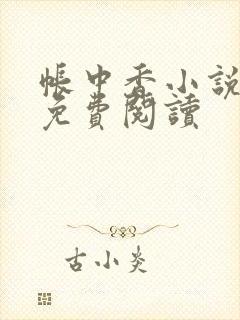 帳中香小說
免費閱讀
古小炎